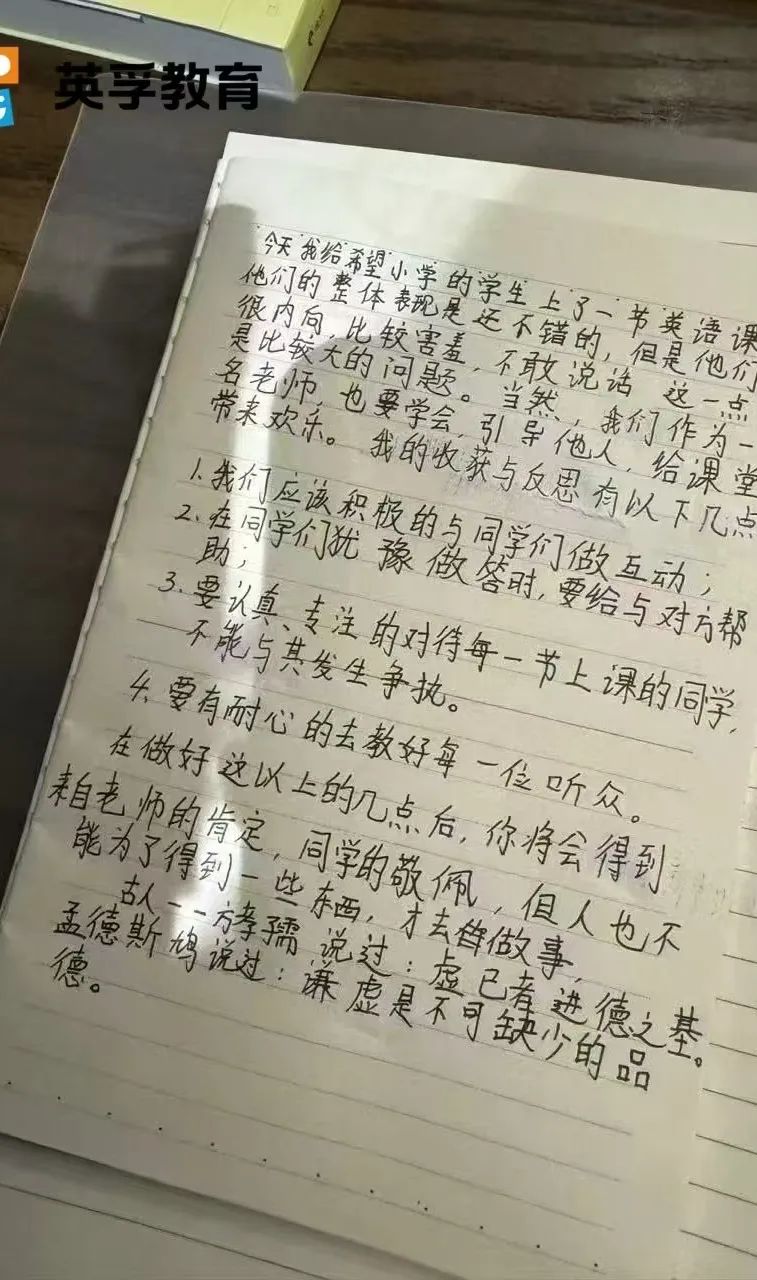 英孚教育
今天我给希望小学的学生上了一节英语课
他们的整体表现是还不错的，但是他们
很内向，比较害羞，不敢说话 这一点
是比较大的问题。当然，我们作为一
名老师，也要学会，引导他人，给课堂
带来欢乐。 我的收获与反思有以下几点
1.我们应该积极的与同学们做互动；
2.在同学们犹豫做答时,要给与对方帮
助；
3.要认真、专注的对待每一节上课的同学,
不能与其发生争执。
4.要有耐心的去教好每一位听众。
在做好这以上的几点后,你将会得到
来自老师的肯定，同学的敬佩，但人也不
能为了得到一些东西，才去做事,
古人——方孝孺说过：虚已者进德之基。
孟德斯鸠说过：谦虚是不可缺少的品
德。